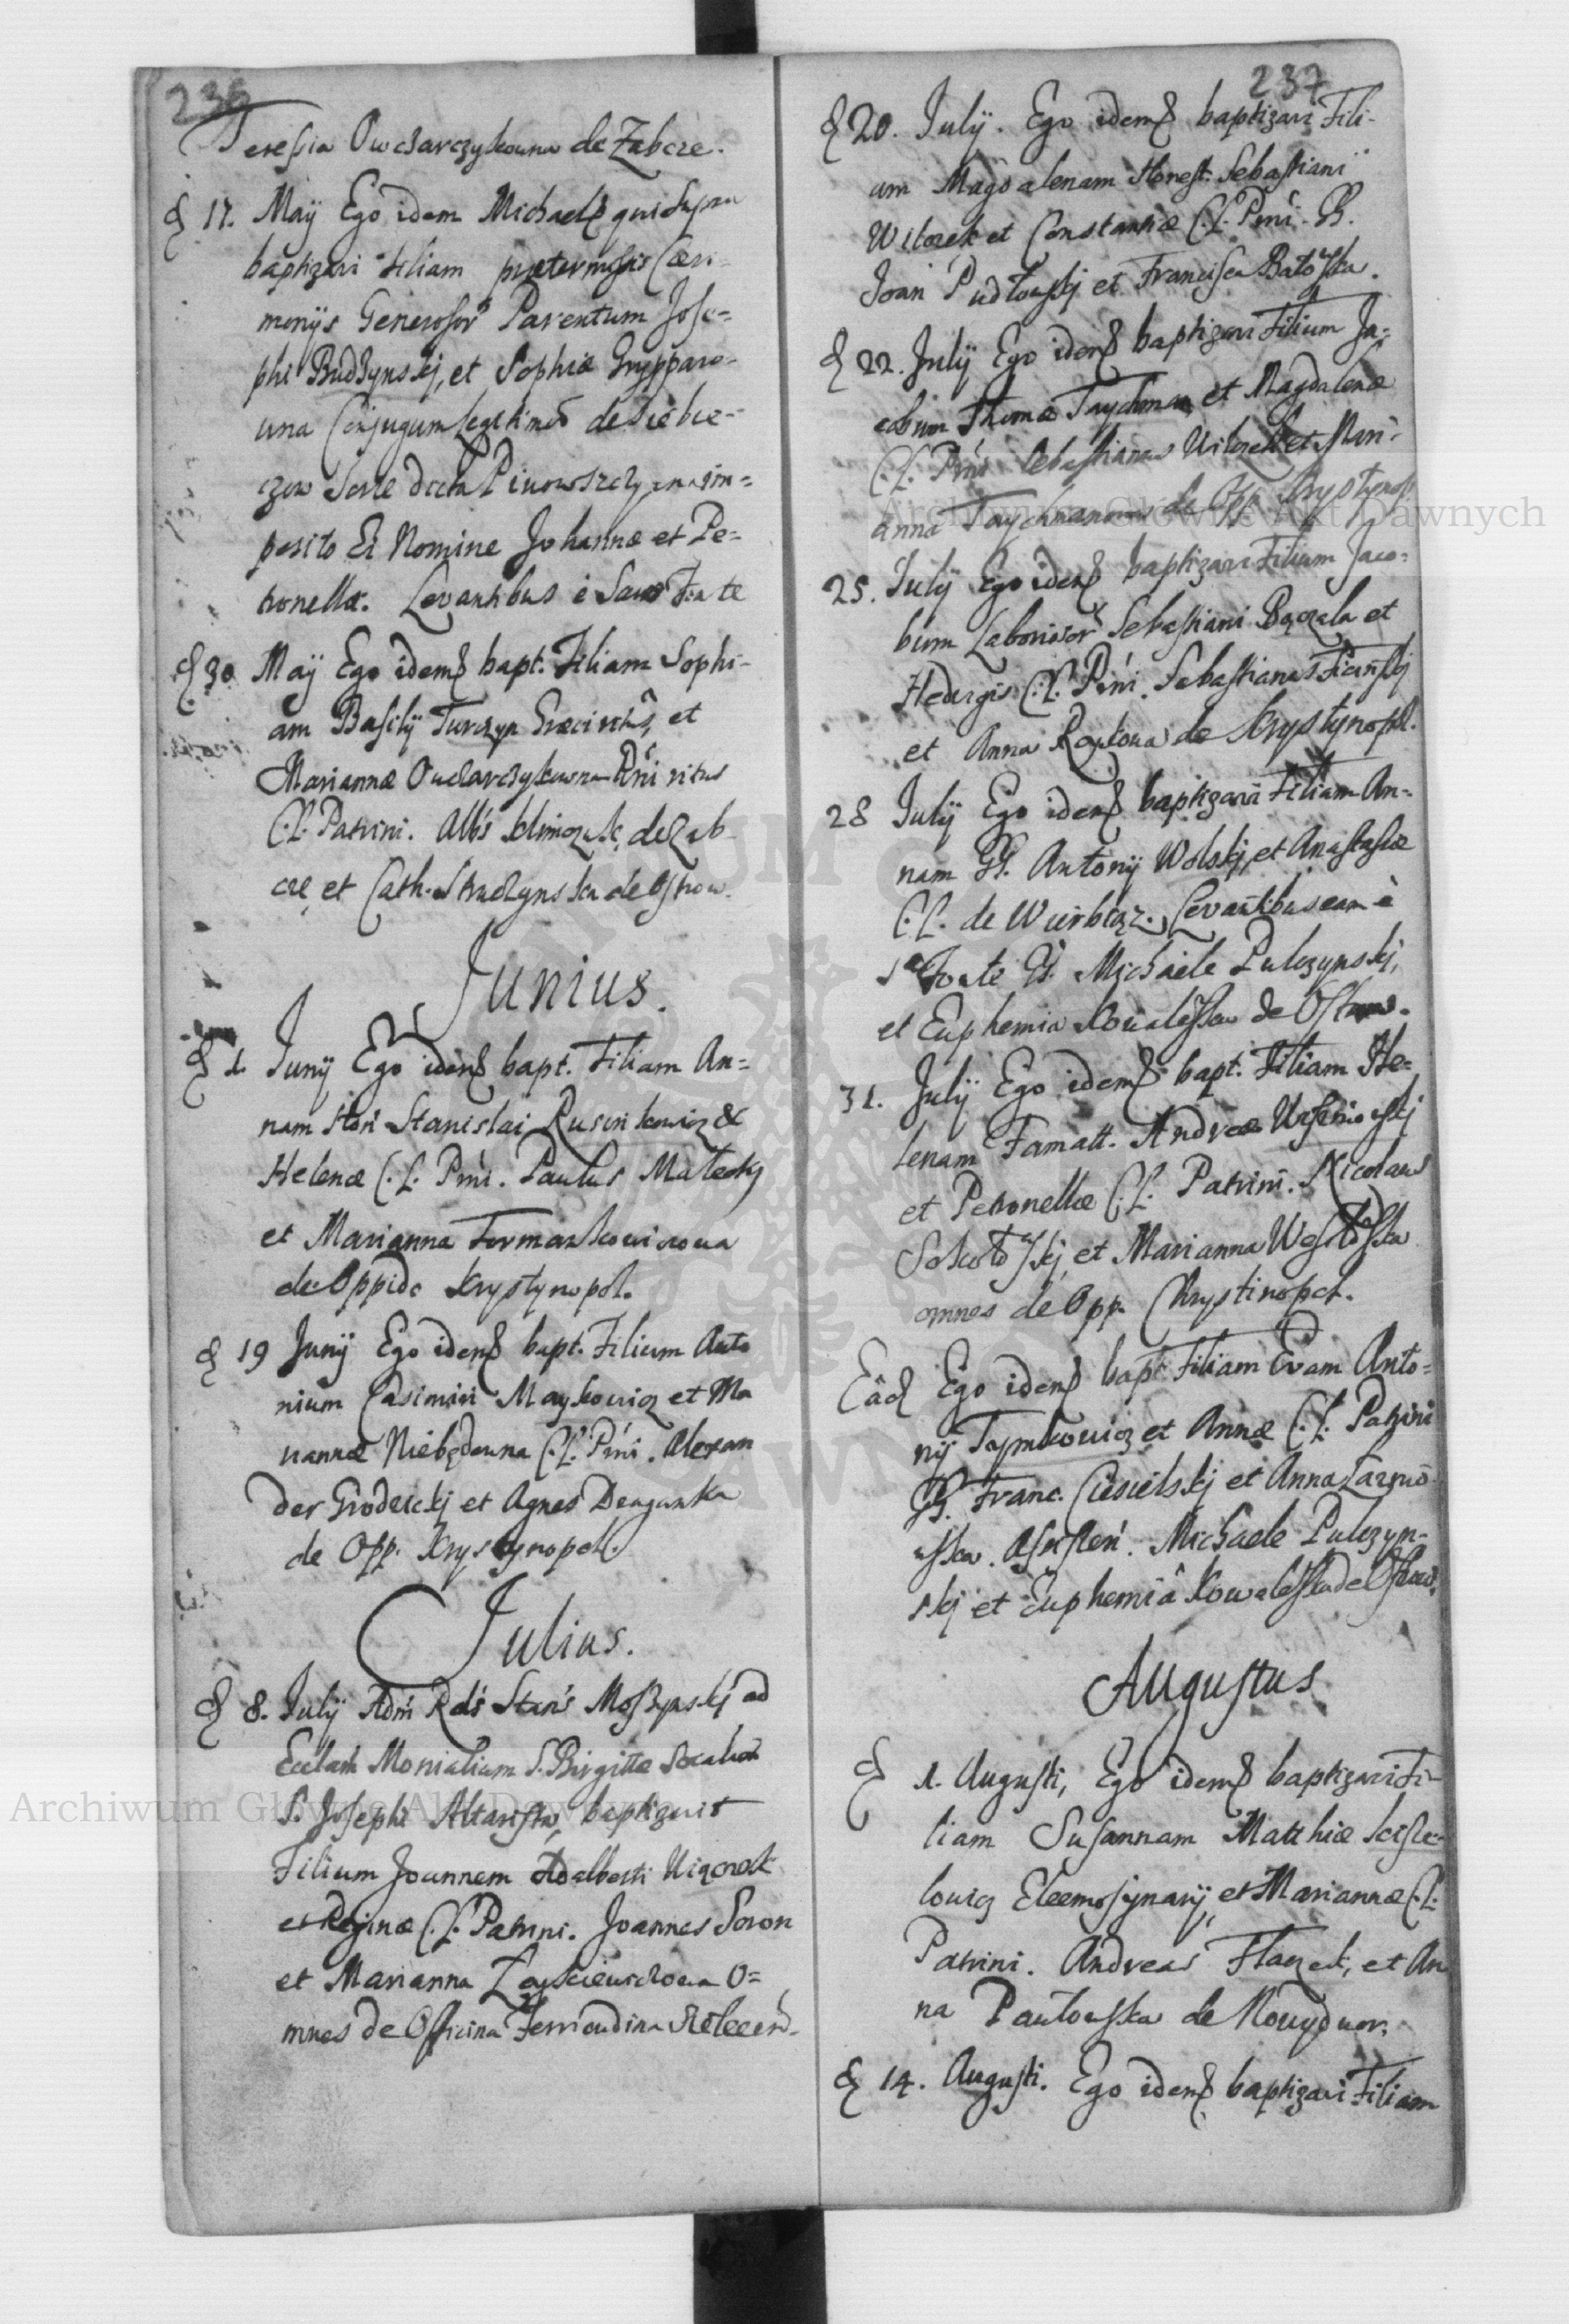 236
Teresia Owczarczykowna de Zabcze.
D 17. Maÿ Ego idem Michael qui supra
baptizavi Filiam prætermissis Cæri-
monÿs Generosor Parentum Jose=
phi Budzynskj, et Sophiæ Grypparo-
una Conjugum legitimor de
posito Ei Nomine Johannæ et Pe=
tronellæ. Levantibus è Sacro Fonte
D 30 Maÿ Ego idem bapt. Filiam Sophi-
am Basilÿ Turczyn Græci ritus, et
Mariannæ Owczarczykowna Rni ritus
C.L. Patrini. Albs Klimczuk, de Zab-
cze, et Cath. Straczynska de Ostrow.
Junius.
D 1 Junÿ Ego idem bapt. Filiam An=
nam Hon Stanislai Rusinkowicz &
Helenæ C.L. Pini. Paulus Malecky
et Marianna Formankowiczowa
de Oppido Krystynopol.
D 19 Junÿ Ego idem bapt. Filium Anto
nium Casimiri Maykowicz et Ma
riannæ Niebędowna C.L. Pini. Alexan
der Grodzickj et Agnes Dragunka
de Opp. Krystynopol.
Julius.
D 8. Julÿ Adm Rds Stans Moszynskj ad
Ecclam Monialium S. Birgittæ Socalien
S. Josephi Altarista, baptizavit
Filium Joannem Adalberti Wiącrek
et Reginæ C.L. Patrini. Joannes Soron
et Marianna O=
mnes de Officina
237
D 20. Julÿ. Ego idem baptizavi Fili-
am Magdalenam Honest. Sebastiani
Wilczek et Constantiæ C.L. Pini. G.
Joan Pudlowskj et Francisca Batowska.
D 22. Julÿ Ego idem baptizavi Filium Ja=
cobum Thomæ Taychman et Magdalenæ
C.L. Pini Sebastianus Wilczek et Mari-
anna Taychmanowa de Opp. Krystynop.
25. Julÿ Ego idem baptizavi Filium Jaco=
bum Laboriosor Sebastiani Bączala et
Hedvigis C.L. Pini. Sebastianus
et Anna de Krystynopol.
28 Julÿ Ego idem baptizavi Filiam An-
nam G. Antonÿ Wolskj, et Anastasiæ
C.L. de Wierbiąz. Levantibus eam è
S. Fonte G. Michaele Pulczynskj,
et Euphemia Kowalesska de Ostrow.
31. Julÿ Ego idem bapt. Filiam He=
lenam Famatt. Andreæ Wisniowskj
et Petronellæ C.L. Patrini. Nicolaus
Sokołowskj, et Marianna Węsłowska
omnes de Opp. Chrystinopol.
Eâd Ego idem bapt Filiam Evam Anto=
nÿ Tymkowicz et Annæ C.L. Patrini
G. Franc. Ciesielskj et Anna Łazino=
wska. Assisten. Michaele Pulczyn-
skj et Euphemiâ Kowalesska de Ostrow.
Augustus
D 1. Augusti, Ego idem baptizavi Fi-
liam Susannam Matthiæ Kisie=
lowicz Eleemosynarÿ, et Mariannæ C.L.
Patrini. Andreas Flaczek, et An
na Pawłowska de Nowydwor.
D 14. Augusti. Ego idem baptizavi Filiam
Archiwum Główne Akt Dawnych
Archiwum Główne Akt Dawnych